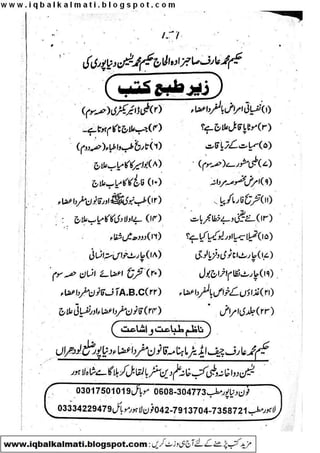 www.iqbalkalmati.blogspot.com
حکیم محمد عارف صاحبزادہ الحاج حکیم محمد یٰسین دنیاپوری کی
زیر طبع کتب
(۱) نفسیاتی امراض بالمفرد اعضاء
(۲) طبی ڈائریکٹری (حصہ سوم)
(۳) موٹاپا قابل علاج ہے؟
(۴) جب علاج ناکام ہوتا ہے۔
(۵) سمیات کے تریاقات
(۶) تاریخ طب واطباء (حصہ دوم)
(۷) طبی مشورے (حصہ سوم)
(۸) بواسیر کا کامیاب علاج
(۹) امراض مخصوصہ مردانہ
(۱۰) فالج کا کامیاب علاج
(۱۱) تشریح فارماکوپیا
(۱۲) طب نبوی ﷺ اور قانون مفرد اعضاء
(۱۳) بے خطا مجربات
(۱۴) بے اولادی کا کامیاب علاج
(۱۵) تھیلاسیمیا اور لیوکیمیا کیا ہے؟
(۱۶) دودھ میں شفاء
(۱۷) چارٹ اناٹومی وفزیالوجی
(۱۸) چارٹ حواس خمسہ انسانی
(۱۹) چارٹ نظام اخراج بول
(۲۰) تشریح اعضائے انسان حصہ سوم
(۲۱) غذاؤں کے خواص بالمفرد اعضاء
(۲۲) A.B.C آف قانون مفرد اعضاء
(۲۳) جلدی امراض
(۲۴) قانون مفرد اعضاء اور نفسیاتی علاج
ناظم طباعت و اشاعت
حکیم محمد عارف چیف ایڈیٹر ماہنامہ قانون مفرد اعضاء دنیاپور ضلع لودھراں
یٰسین دواخانہ و طبی کتب خانہ دین بالمقابل کربلا گامے شاہ لاہور
فون دنیاپور مطب 0608-304773 موبائل 03017501019
لاہور مطب 042-7913704-7358721 فون لاہور موبائل 03334229479
www.iqbalkalmati.blogspot.com : مزید کتب پڑھنے کے لئے آج ہی وزٹ کریں